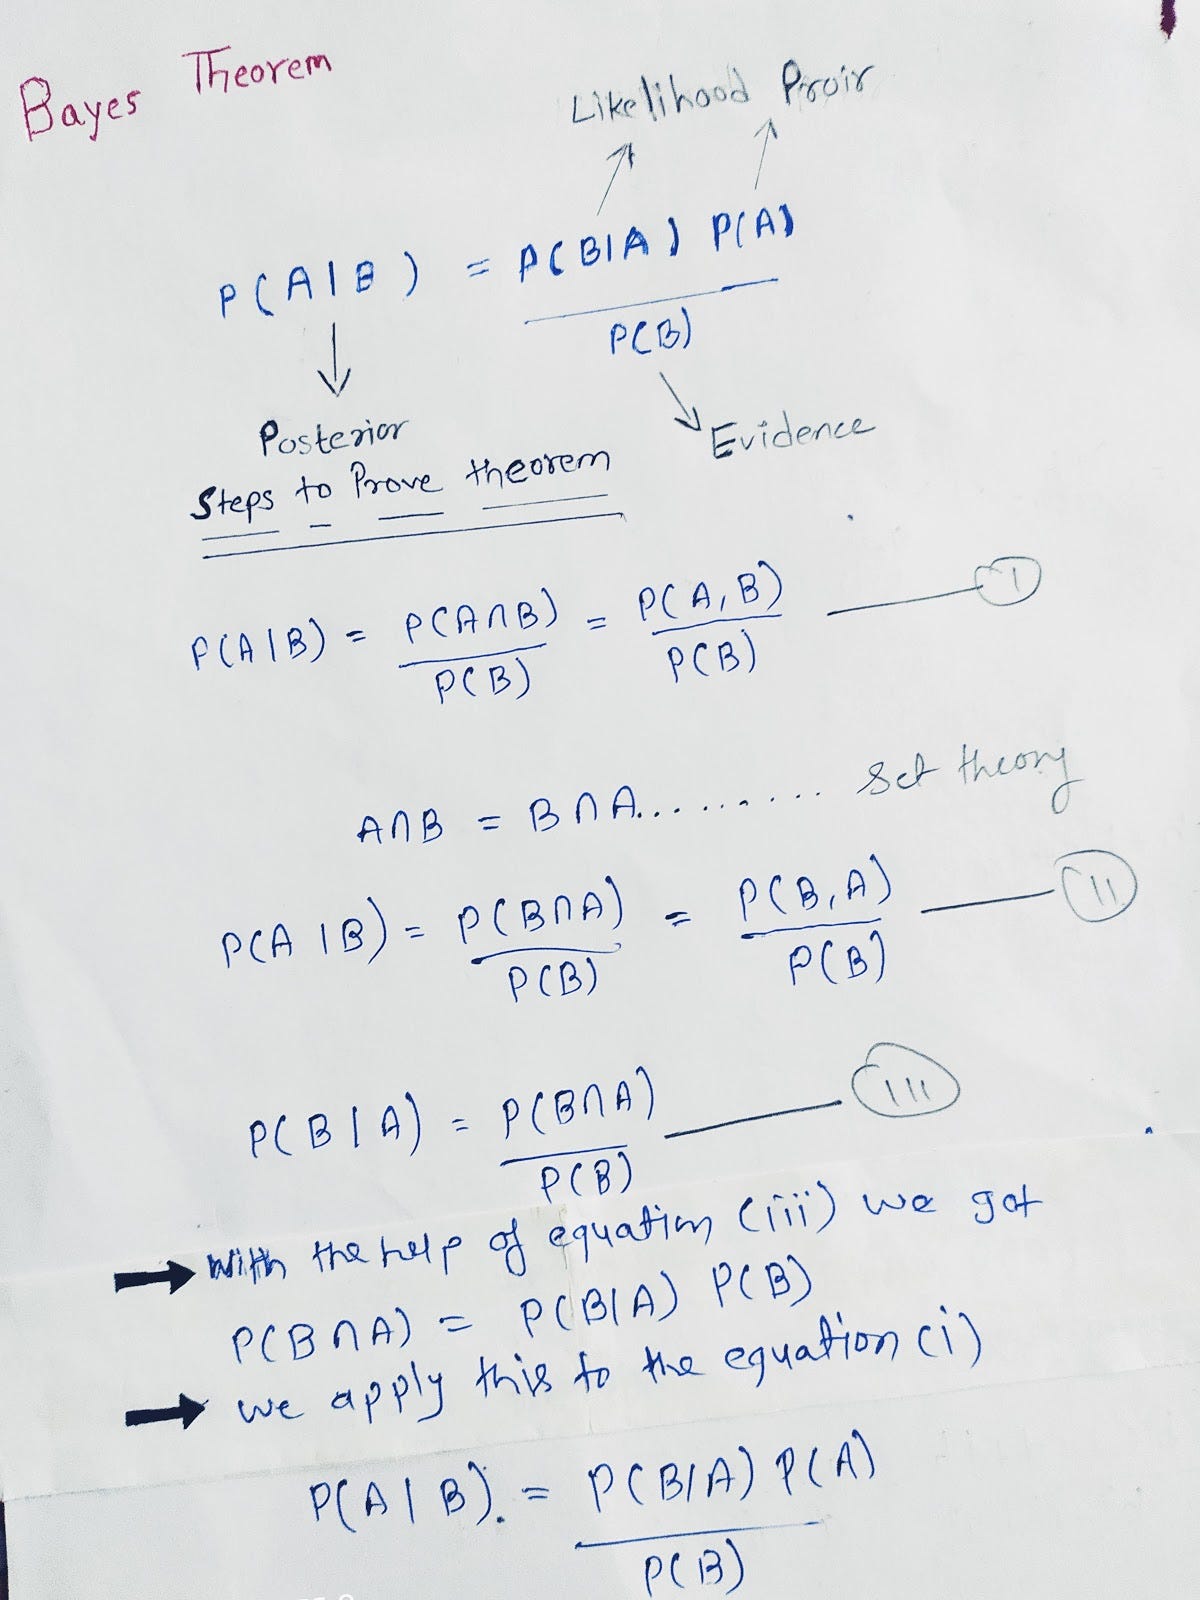 Bayes Theorem
Likelihood Proir
P(A|B) = P(B|A) P(A)
P(B)
Posterior
Evidence
Steps to Prove theorem
P(A|B) = P(A∩B) = P(A,B) I
P(B) P(B)
A∩B = B∩A......... Set theory
P(A|B) = P(B∩A) = P(B,A) II
P(B) P(B)
P(B|A) = P(B∩A) III
P(B)
With the help of equation (iii) we got
P(B∩A) = P(B|A) P(B)
we apply this to the equation (i)
P(A|B). = P(B|A) P(A)
P(B)